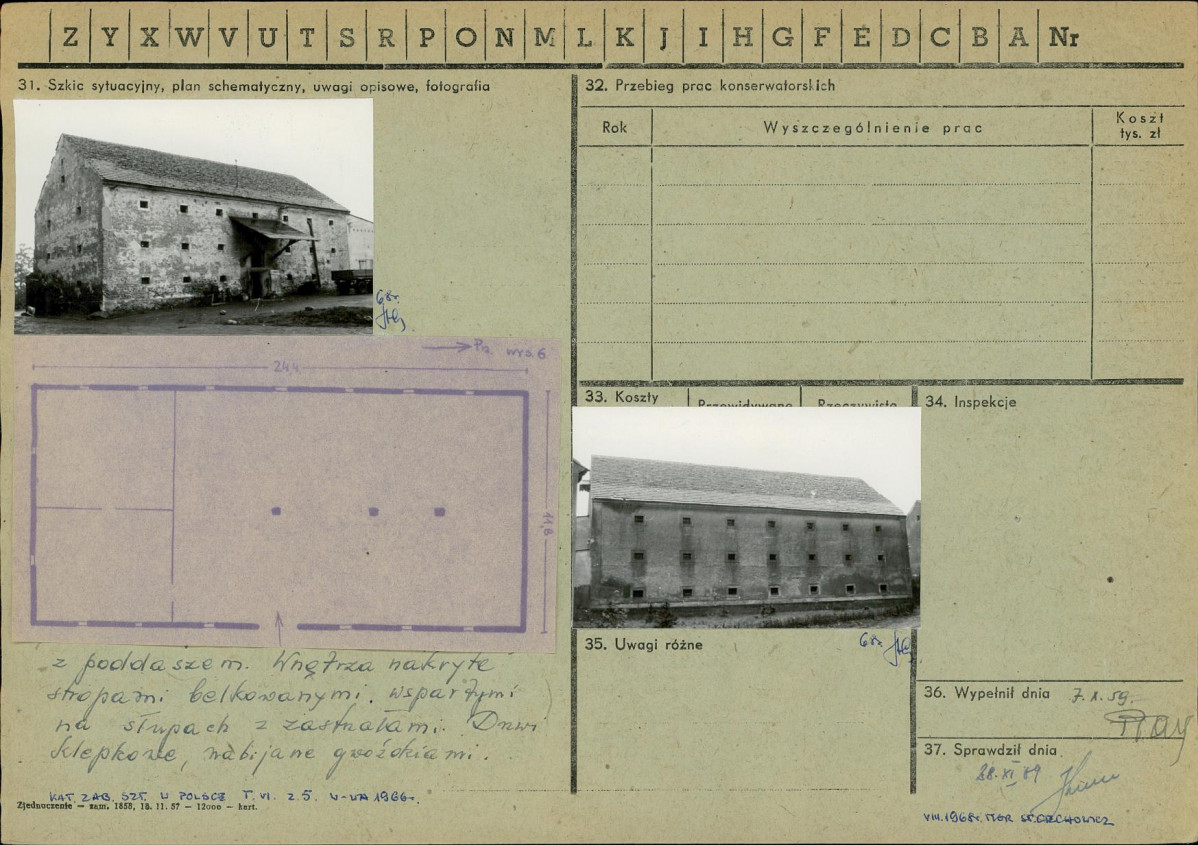 Z Y X W V U T S R P O N M L K J I H G F E D C B A Nr
31. Szkic sytuacyjny, plan schematyczny, uwagi opisowe, fotografia
68r.
→ Pn wys. 6
24,4
11,8
z poddaszem. Wnętrza nakryte
stropami belkowanymi, wspartymi
na słupach z zastrzałami. Drzwi
klepkowe, nabijane gwoździami.
KAT. ZAB. SZT. W POLSCE T. VI. z 5. W-WA 1966r.
Zjednoczenie — zam. 1858, 18. 11. 57 — 12000 — kart.
32. Przebieg prac konserwatorskich
Rok
Wyszczególnienie prac
Koszt
tys. zł
33. Koszty
Przewidywane
Rzeczywiste
34. Inspekcje
68r.
35. Uwagi różne
36. Wypełnił dnia 7.X.59.
37. Sprawdził dnia
28.XI 59
VIII.1968r. MGR ST. CZECHOWICZ